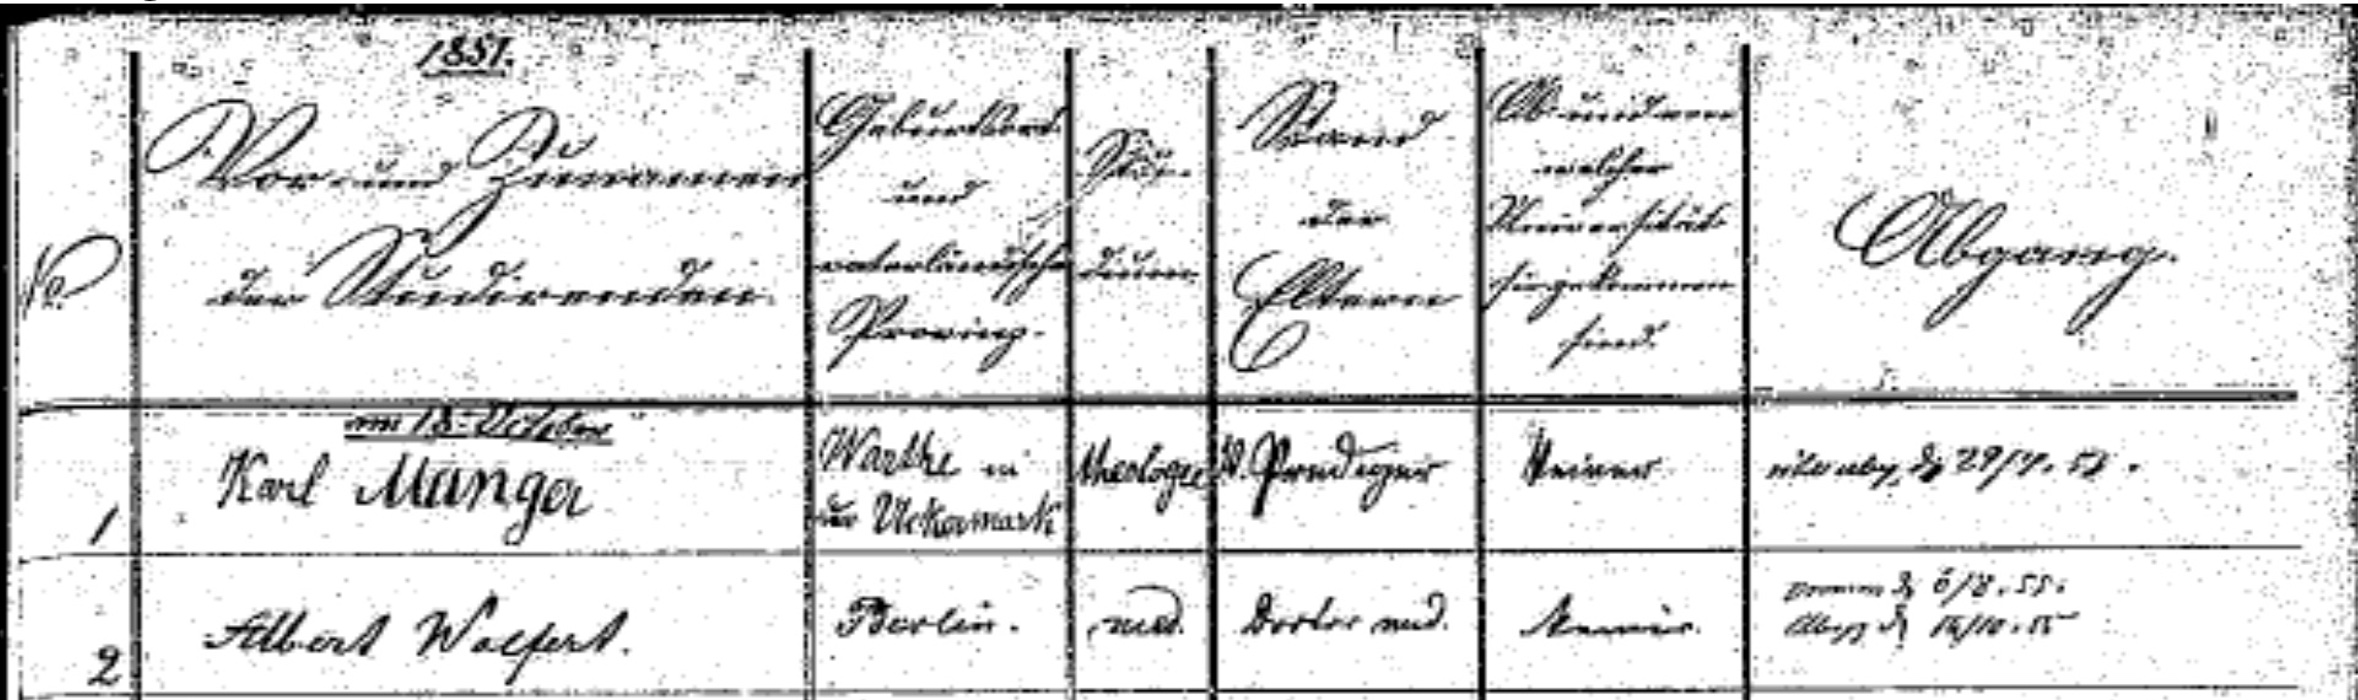 1851.
No.
Vor- und Zunamen
der Studirenden
Geburtsort
und
vaterländische
Provinz.
Stu-
dium
Stand
der
Eltern
Ob und von
welcher
Universität
sie gekommen
sind.
Abgang.
am 18. October
1
Karl Manger
Warthe in
der Uckermark
theologie
Prediger
Keiner
29/7. 52.
2
Albert Wolfert.
Berlin.
med.
Doctor med.
6/8. 55.
16/10. 55